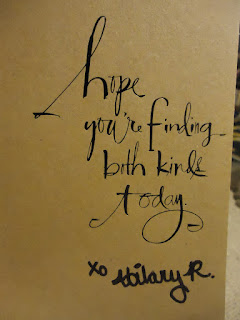 hope
you're finding
both kinds
today.
xo Hilary R.